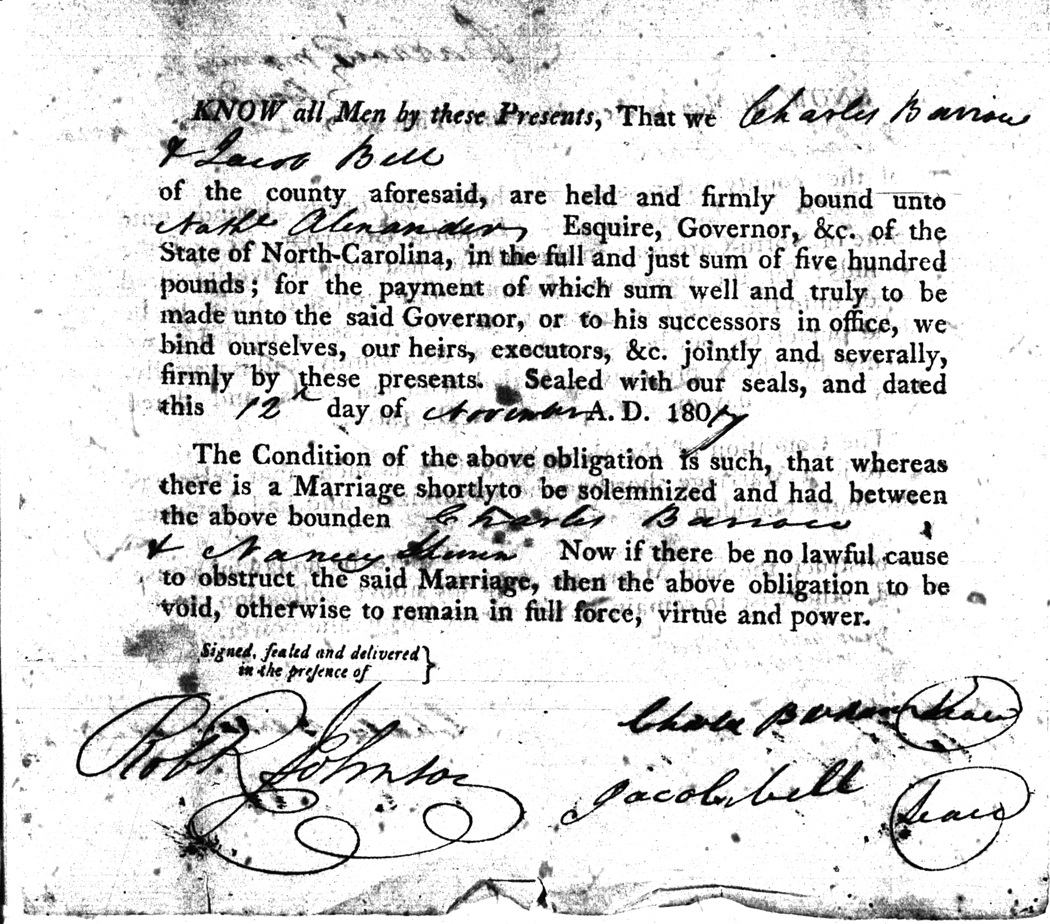 KNOW all Men by these Presents, That we Charles Barrow
& Jacob Bell
of the county aforesaid, are held and firmly bound unto
Nathl Alexander, Esquire, Governor, &c. of the
State of North-Carolina, in the full and just sum of five hundred
pounds; for the payment of which sum well and truly to be
made unto the said Governor, or to his successors in office, we
bind ourselves, our heirs, executors, &c. jointly and severally,
firmly by these presents. Sealed with our seals, and dated
this 12th day of November A. D. 1807
The Condition of the above obligation is such, that whereas
there is a Marriage shortlyto be solemnized and had between
the above bounden Charles Barrow
& Nancy Now if there be no lawful cause
to obstruct the said Marriage, then the above obligation to be
void, otherwise to remain in full force, virtue and power.
Signed, sealed and delivered }
in the presence of
Charles Barrow Seal
Robt Johnson
Jacob bell Seal